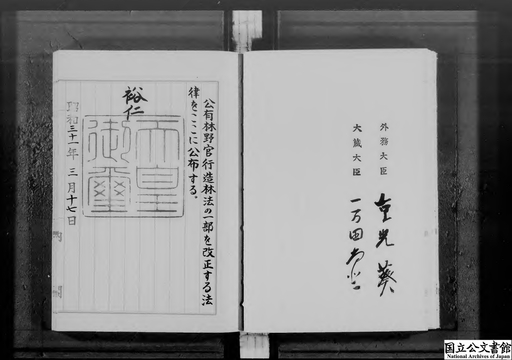 外務大臣 重光葵
大蔵大臣 一万田尚登
公有林野官行造林法の一部を改正する法
律をここに公布する。
裕仁
天皇
御璽
昭和三十一年 三月十七日
国立公文書館
National Archives of Japan